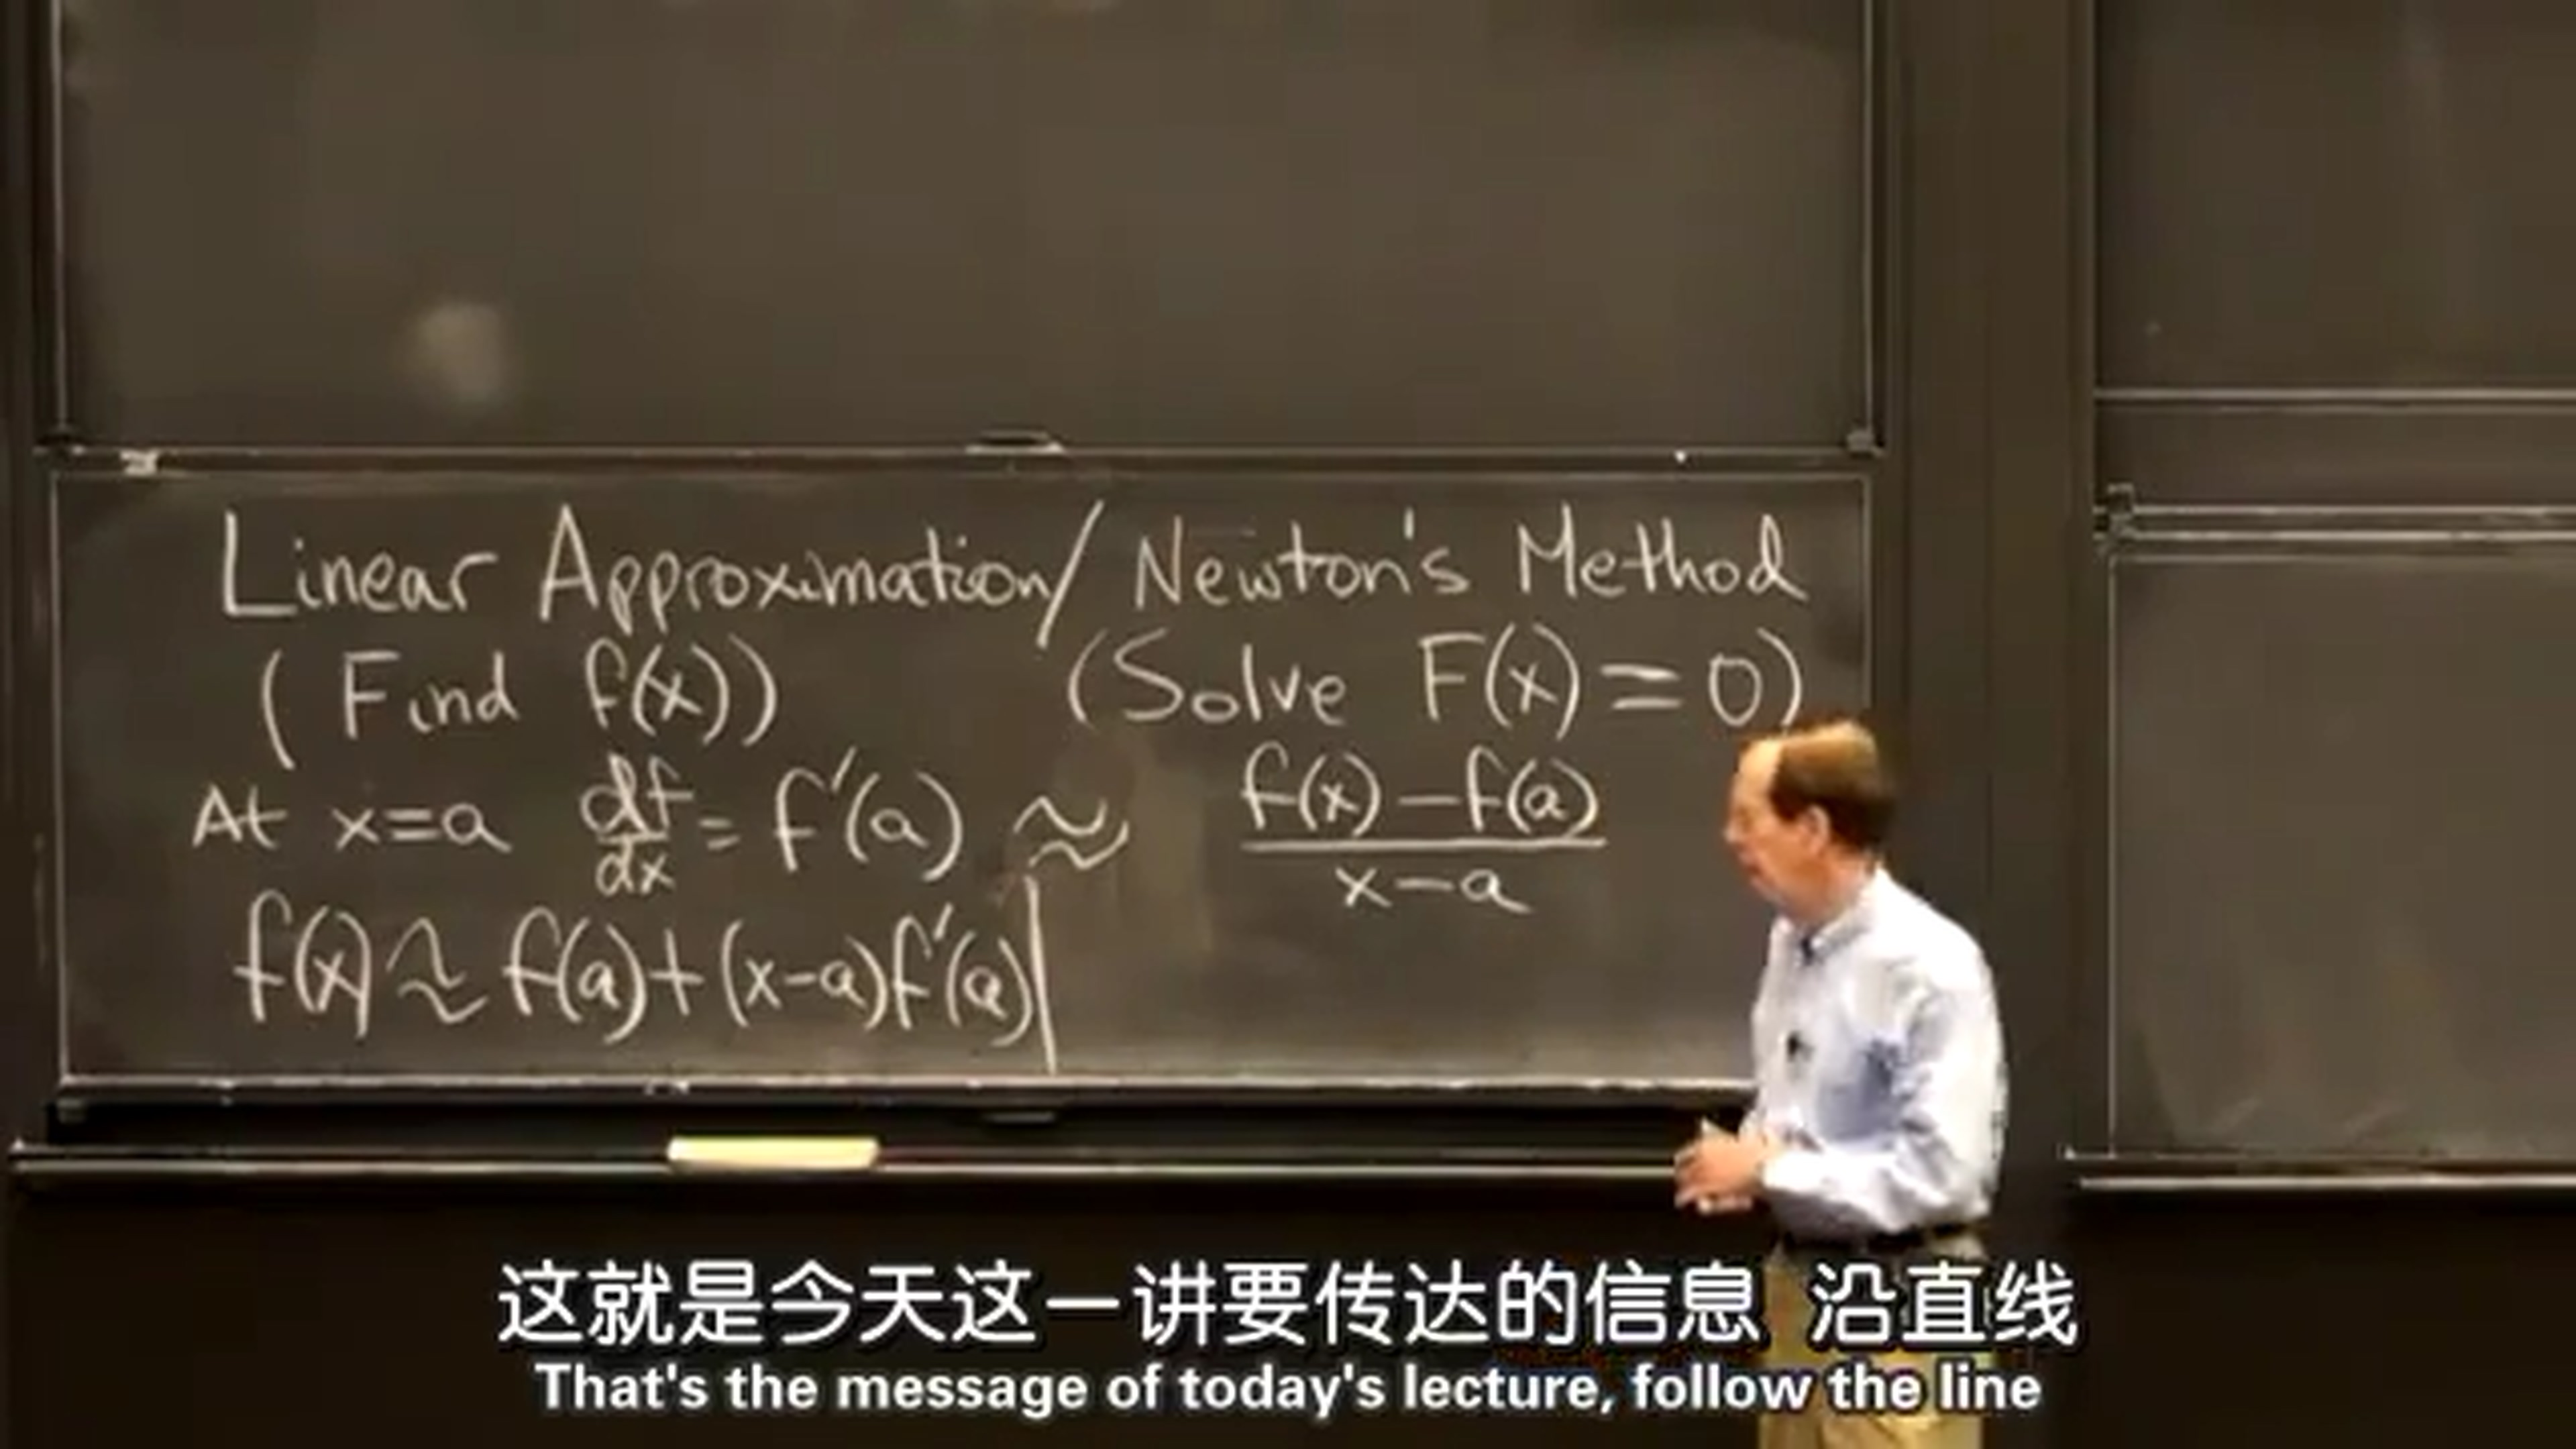 Linear Approximation / Newton's Method
(Find f(x)) (Solve F(x)=0)
At x=a df/dx = f'(a) ≈ f(x)-f(a)/x-a
f(x) ≈ f(a)+(x-a)f'(a)
这就是今天这一讲要传达的信息 沿直线
That's the message of today's lecture, follow the line